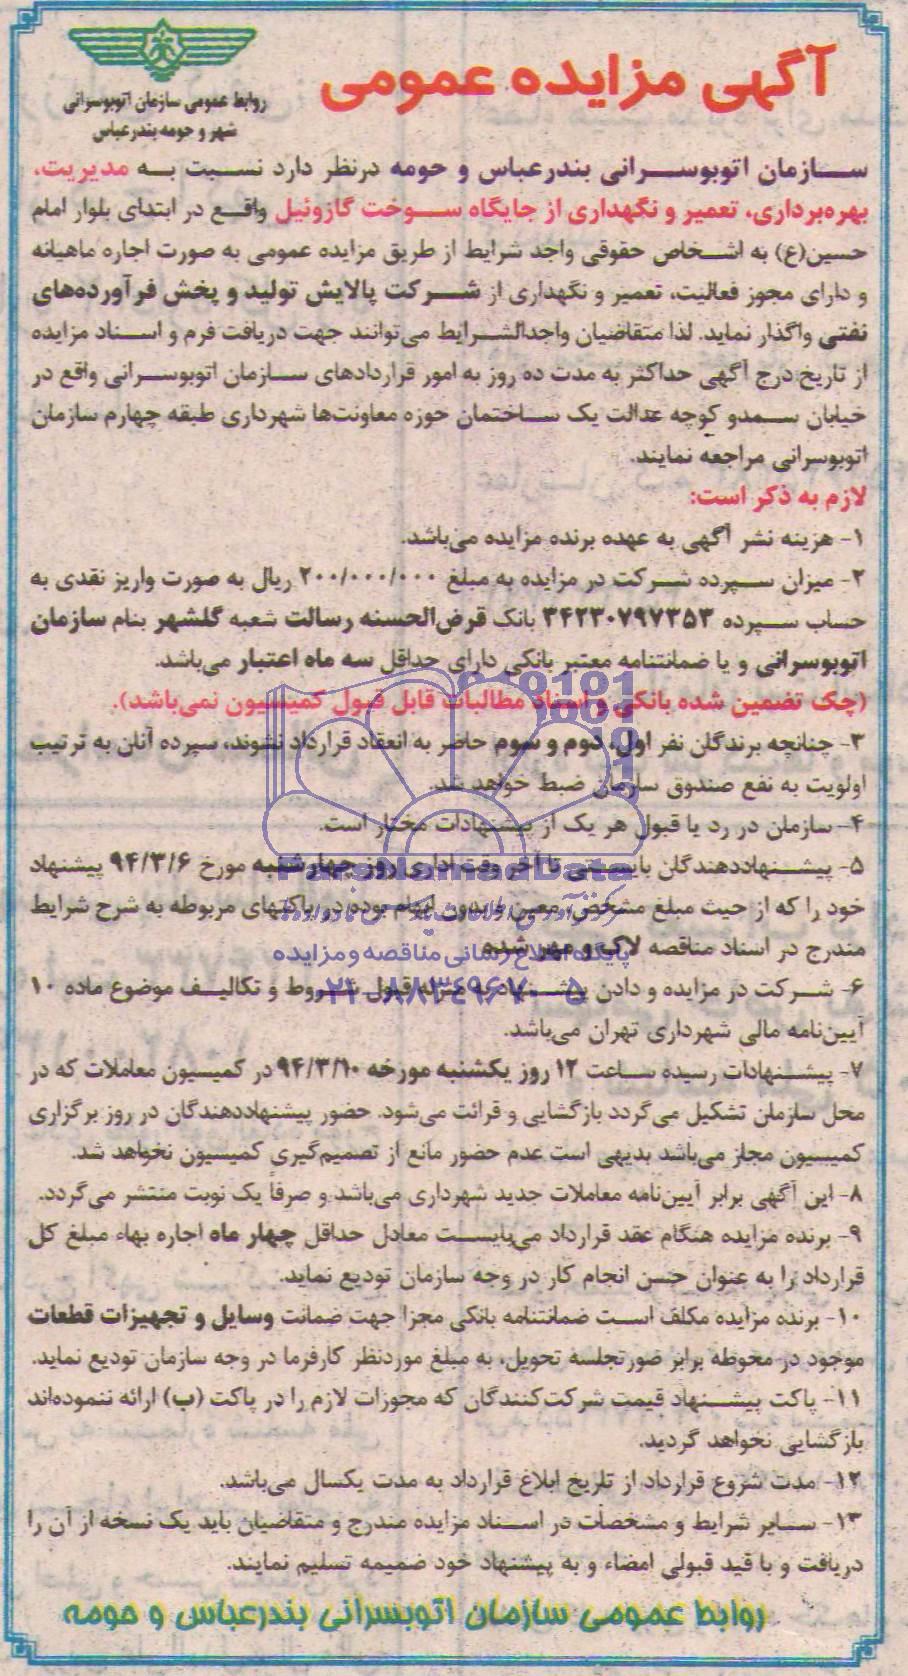 آگهی مزایده عمومی
روابط عمومی سازمان اتوبوسرانی
شهر و حومه بندرعباس
سازمان اتوبوسرانی بندرعباس و حومه درنظر دارد نسبت به مدیریت،
بهره‌برداری، تعمیر و نگهداری از جایگاه سوخت گازوئیل واقع در ابتدای بلوار امام
حسین(ع) به اشخاص حقوقی واجد شرایط از طریق مزایده عمومی به صورت اجاره ماهیانه
و دارای مجوز فعالیت، تعمیر و نگهداری از شرکت پالایش تولید و پخش فرآورده‌های
نفتی واگذار نماید. لذا متقاضیان واجدالشرایط می‌توانند جهت دریافت فرم و اسناد مزایده
از تاریخ درج آگهی حداکثر به مدت ده روز به امور قراردادهای سازمان اتوبوسرانی واقع در
خیابان سمدو کوچه عدالت یک ساختمان حوزه معاونت‌ها شهرداری طبقه چهارم سازمان
اتوبوسرانی مراجعه نمایند.
لازم به ذکر است:
۱- هزینه نشر آگهی به عهده برنده مزایده می‌باشد.
۲- میزان سپرده شرکت در مزایده به مبلغ ۲۰۰/۰۰۰/۰۰۰ ریال به صورت واریز نقدی به
حساب سپرده ۳۴۲۳۰۷۹۷۳۵۳ بانک قرض‌الحسنه رسالت شعبه گلشهر بنام سازمان
اتوبوسرانی و یا ضمانتنامه معتبر بانکی دارای حداقل سه ماه اعتبار می‌باشد.
(چک تضمین شده بانکی و اسناد مطالبات قابل قبول کمیسیون نمی‌باشد).
۳- چنانچه برندگان نفر اول، دوم و سوم حاضر به انعقاد قرارداد نشوند، سپرده آنان به ترتیب
اولویت به نفع صندوق سازمان ضبط خواهد شد.
۴- سازمان در رد یا قبول هر یک از پیشنهادات مختار است.
۵- پیشنهاددهندگان بایستی تا آخر وقت اداری روز چهارشنبه مورخ ۹۴/۳/۶ پیشنهاد
خود را که از حیث مبلغ مشخص، معین و بدون ابهام بوده در پاکتهای مربوطه به شرح شرایط
مندرج در اسناد مناقصه لاک و مهر شده
ParsNamadData
پایگاه اطلاع رسانی مناقصه و مزایده
۰۲۱-۸۸۳۴۹۶۷۰-۵
۶- شرکت در مزایده و دادن پیشنهاد به منزله قبول شروط و تکالیف موضوع ماده ۱۰
آیین‌نامه مالی شهرداری تهران می‌باشد.
۷- پیشنهادات رسیده ساعت ۱۲ روز یکشنبه مورخه ۹۴/۳/۱۰ در کمیسیون معاملات که در
محل سازمان تشکیل می‌گردد بازگشایی و قرائت می‌شود. حضور پیشنهاددهندگان در روز برگزاری
کمیسیون مجاز می‌باشد بدیهی است عدم حضور مانع از تصمیم‌گیری کمیسیون نخواهد شد.
۸- این آگهی برابر آیین‌نامه معاملات جدید شهرداری می‌باشد و صرفاً یک نوبت منتشر می‌گردد.
۹- برنده مزایده هنگام عقد قرارداد می‌بایست معادل حداقل چهار ماه اجاره بهاء مبلغ کل
قرارداد را به عنوان حسن انجام کار در وجه سازمان تودیع نماید.
۱۰- برنده مزایده مکلف است ضمانتنامه بانکی مجزا جهت ضمانت وسایل و تجهیزات قطعات
موجود در محوطه برابر صورتجلسه تحویل، به مبلغ موردنظر کارفرما در وجه سازمان تودیع نماید.
۱۱- پاکت پیشنهاد قیمت شرکت‌کنندگان که مجوزات لازم را در پاکت (ب) ارائه ننموده‌اند
بازگشایی نخواهد گردید.
۱۲- مدت شروع قرارداد از تاریخ ابلاغ قرارداد به مدت یکسال می‌باشد.
۱۳- سایر شرایط و مشخصات در اسناد مزایده مندرج و متقاضیان باید یک نسخه از آن را
دریافت و با قید قبولی امضاء و به پیشنهاد خود ضمیمه تسلیم نمایند.
روابط عمومی سازمان اتوبسرانی بندرعباس و حومه